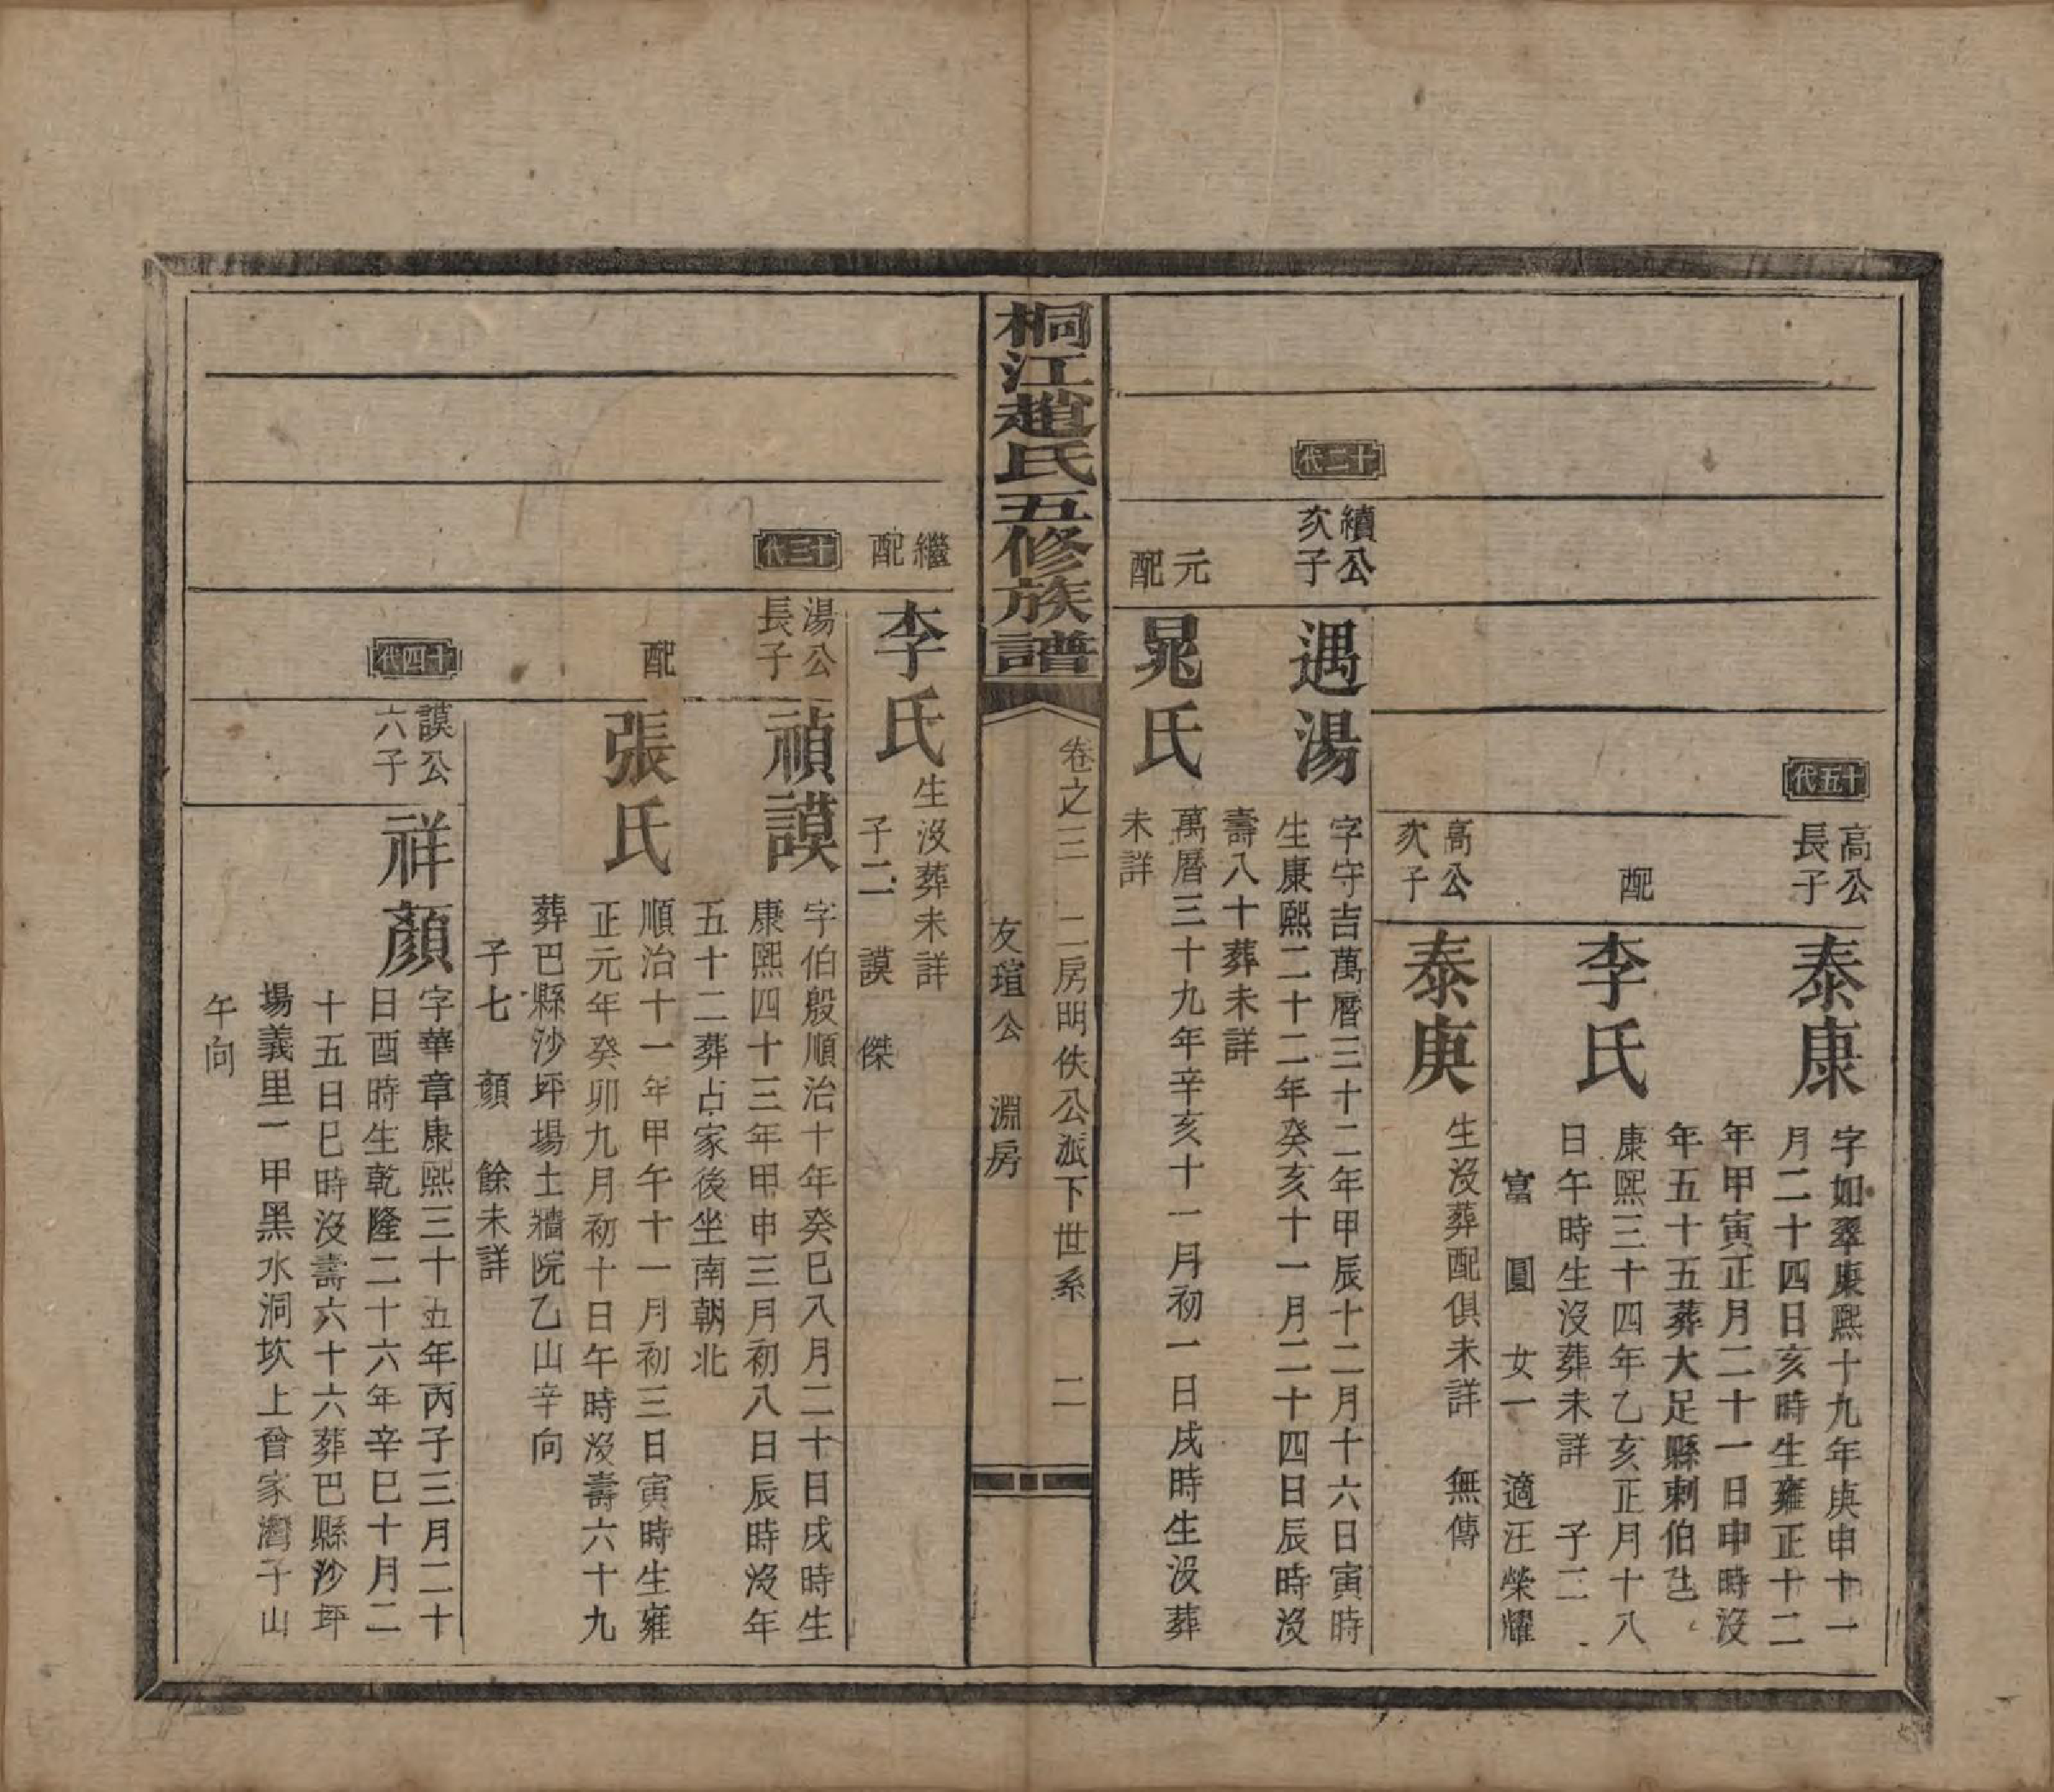 十五代
高公
長子
泰康
字如翠康熙十九年庚申十一
月二十四日亥時生雍正十二
年甲寅正月二十一日申時沒
年五十五葬大足縣刺伯
配
李氏
康熙三十四年乙亥正月十八
日午時生沒葬未詳 子二
富 圓 女一 適汪榮耀
高公
次子
泰庚
生沒葬配俱未詳 無傳
十二代
續公
次子
遇湯
字守吉萬曆三十二年甲辰十二月十六日寅時
生康熙二十二年癸亥十一月二十四日辰時沒
壽八十葬未詳
元
配
晁氏
萬曆三十九年辛亥十一月初一日戌時生沒葬
未詳
桐江趙氏五修族譜
卷之三 二房明佚公派下世系 二
友瑄公 淵房
繼
配
李氏
生沒葬未詳
子二 謨 傑
十三代
湯公
長子
禎謨
字伯殷順治十年癸巳八月二十日戌時生
康熙四十三年甲申三月初八日辰時沒年
五十二葬占家後坐南朝北
配
張氏
順治十一年甲午十一月初三日寅時生雍
正元年癸卯九月初十日午時沒壽六十九
葬巴縣沙坪場土牆院乙山辛向
子七 顏 餘未詳
十四代
謨公
六子
祥顏
字華章康熙三十五年丙子三月二十
日酉時生乾隆二十六年辛巳十月二
十五日巳時沒壽六十六葬巴縣沙坪
場義里一甲黑水洞坎上曾家灣子山
午向